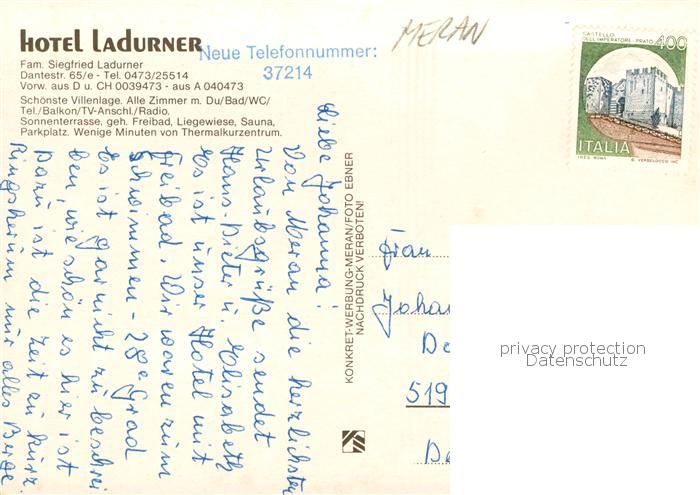 HOTEL LADURNER
Fam. Siegfried Ladurner
Dantestr. 65/e - Tel. 0473/25514
Vorw. aus D u. CH 0039473 - aus A 040473
Schönste Villenlage. Alle Zimmer m. Du/Bad/WC/
Tel./Balkon/TV-Anschl./Radio,
Sonnenterrasse, geh. Freibad, Liegewiese, Sauna,
Parkplatz. Wenige Minuten von Thermalkurzentrum.
Neue Telefonnummer:
37214
MERAN
CASTELLO
DELL'IMPERATORE - PRATO
400
ITALIA
I.P.Z.S. ROMA
Liebe Johanna!
Von Meran die herzlichsten
Urlaubsgrüße sendet
Hans-Dieter u. Elisabeth
Es ist unser Hotel mit
Freibad. Wir waren zum
Schwimmen - 28° Grad
Es ist garnicht zu beschrei
ben, wie schön es hier ist
Dazu ist die Zeit zu kurz.
Ringsherum nur alles Berge
KONKRET-WERBUNG-MERAN/FOTO EBNER
NACHDRUCK VERBOTEN!
Frau
Johan
De
519
De
privacy protection
Datenschutz